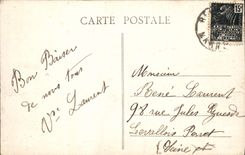 CARTE POSTALE
Bon Baiser
de nous tous
Vve Laurent
Monsieur
René Laurent
98 rue Jules Guesde
Levallois Perret
(Seine)